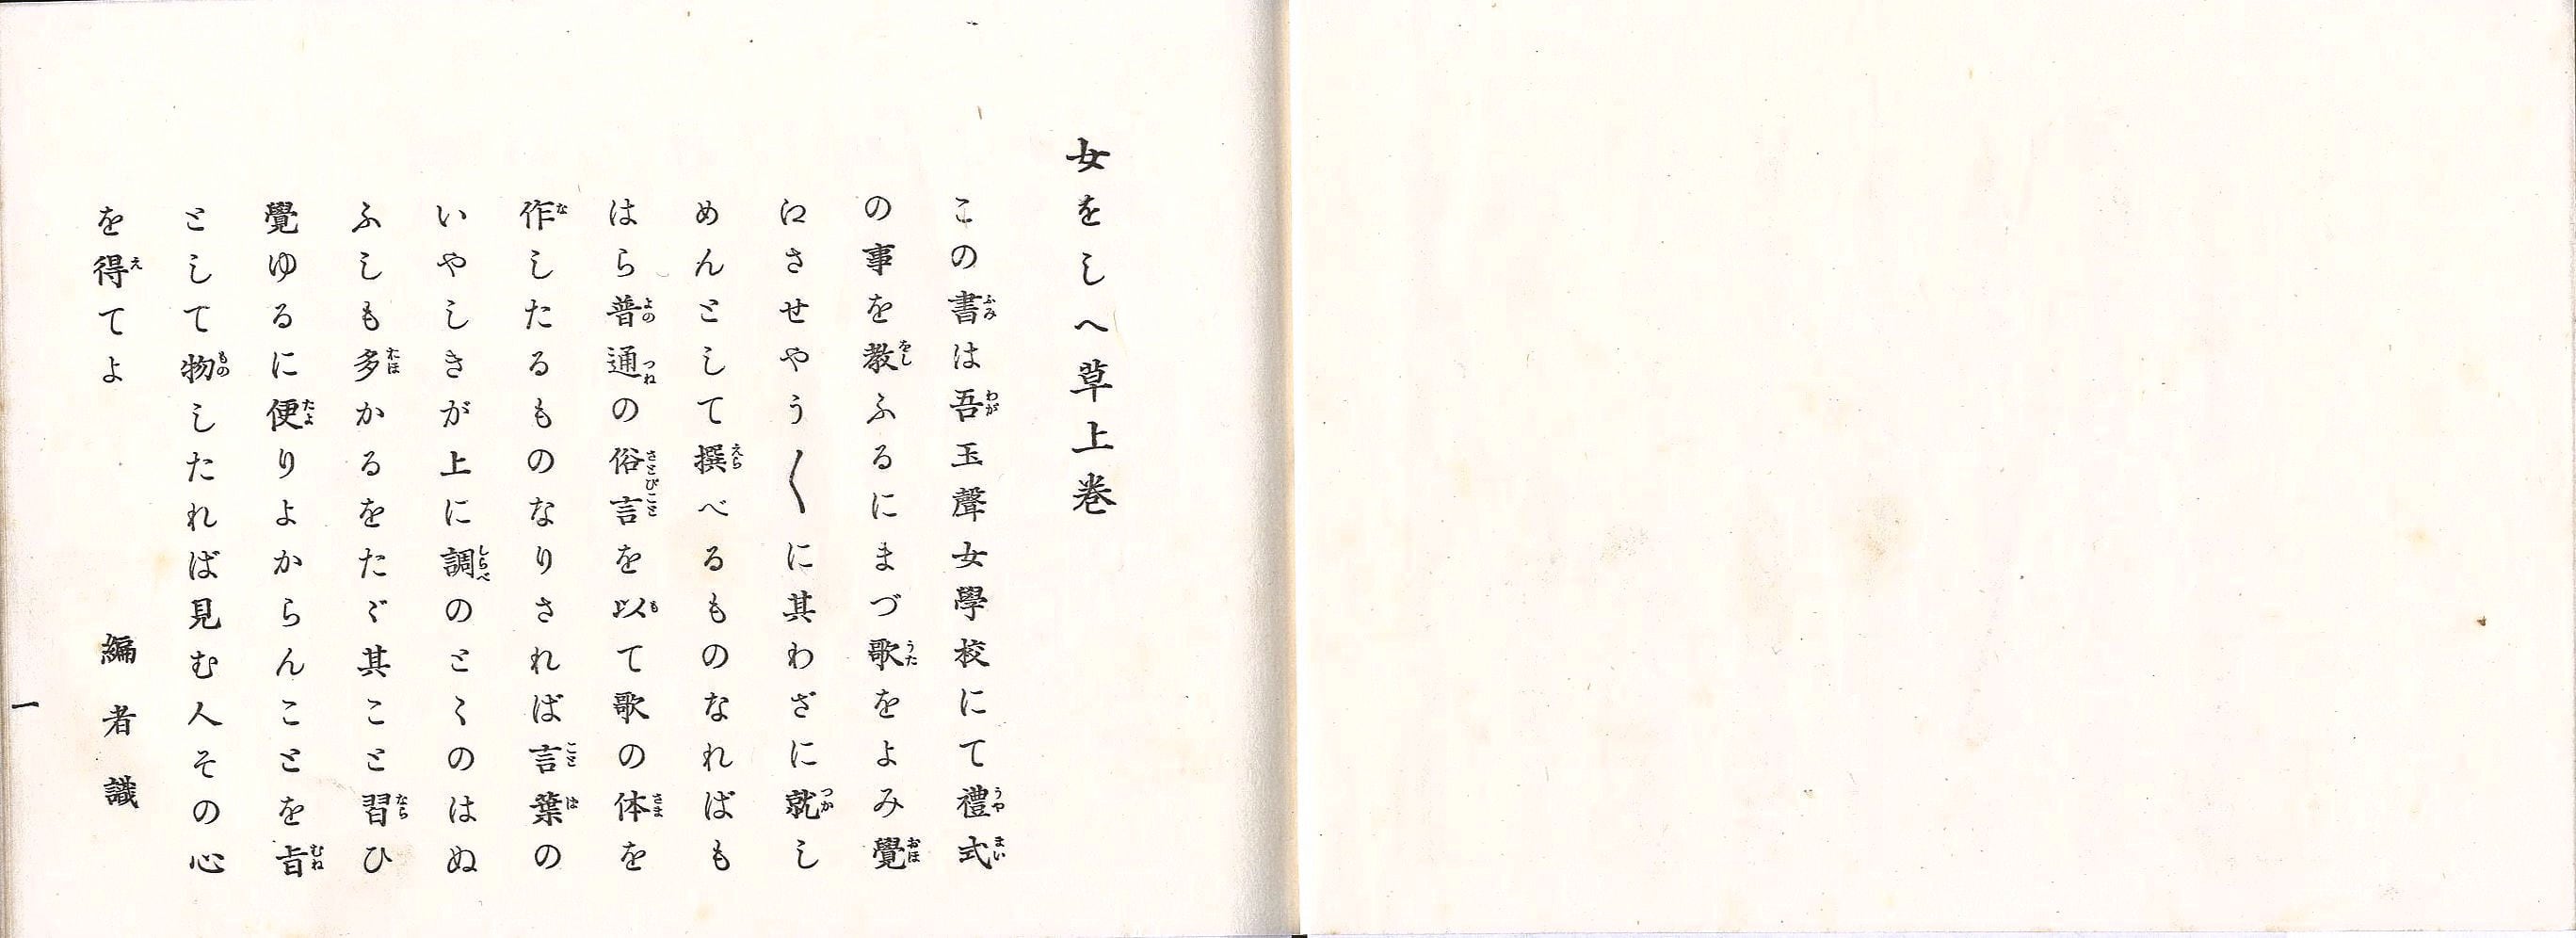 女をしへ草上巻
この書は吾玉聲女學校にて禮式
の事を教ふるにまづ歌をよみ覺
えさせやう〱に其わざに就し
めんとして撰べるものなればも
はら普通の俗言を以て歌の体を
作したるものなりされば言葉の
いやしきが上に調のとゝのはぬ
ふしも多かるをたゞ其こと習ひ
覺ゆるに便りよからんことを旨
として物したれば見む人その心
を得てよ
編者識
一